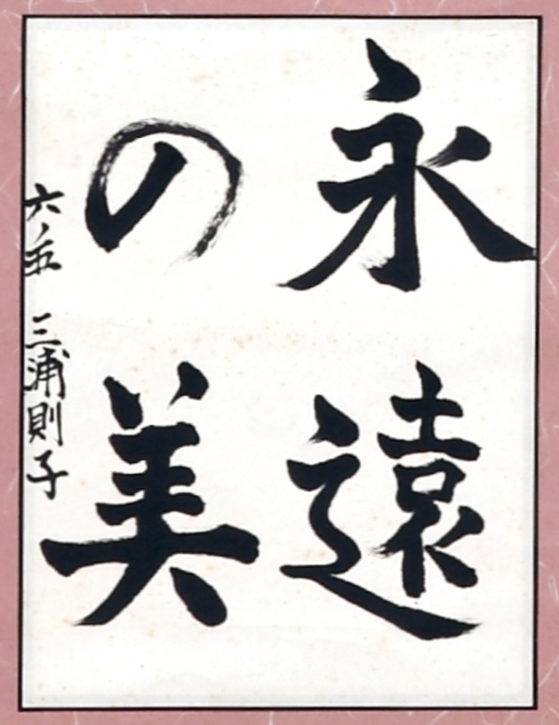 永遠
の美
六ノ五 三浦則子